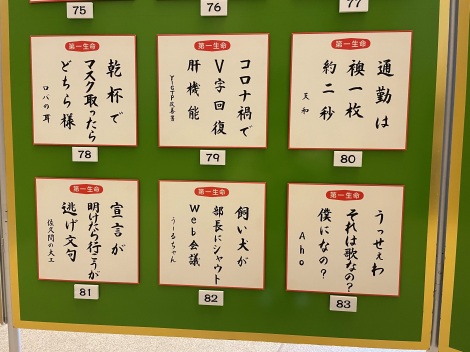 75
76
77
第一生命
乾杯で
マスク取ったら
どちら様
ロバの耳
78
第一生命
コロナ禍で
V字回復
肝機能
79
第一生命
通勤は
襖一枚
約二秒
天和
80
第一生命
宣言が
明けたら行こうが
逃げ文句
佐久間の大工
81
第一生命
飼い犬が
部長にシャウト
Web会議
うーるちゃん
82
第一生命
うっせぇわ
それは歌なの?
僕になの?
Aho
83